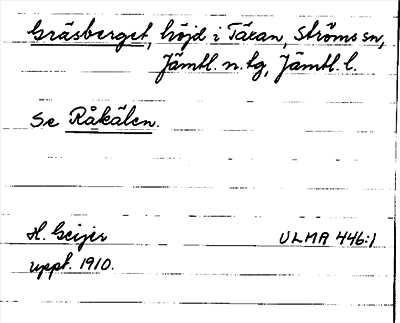 Gräsberget, höjd i Täxan, Ströms sn,
Jämtl. n. tg, Jämtl. l.
Se Råkälen.
H. Geijer ULMA 446:1
uppt. 1910.